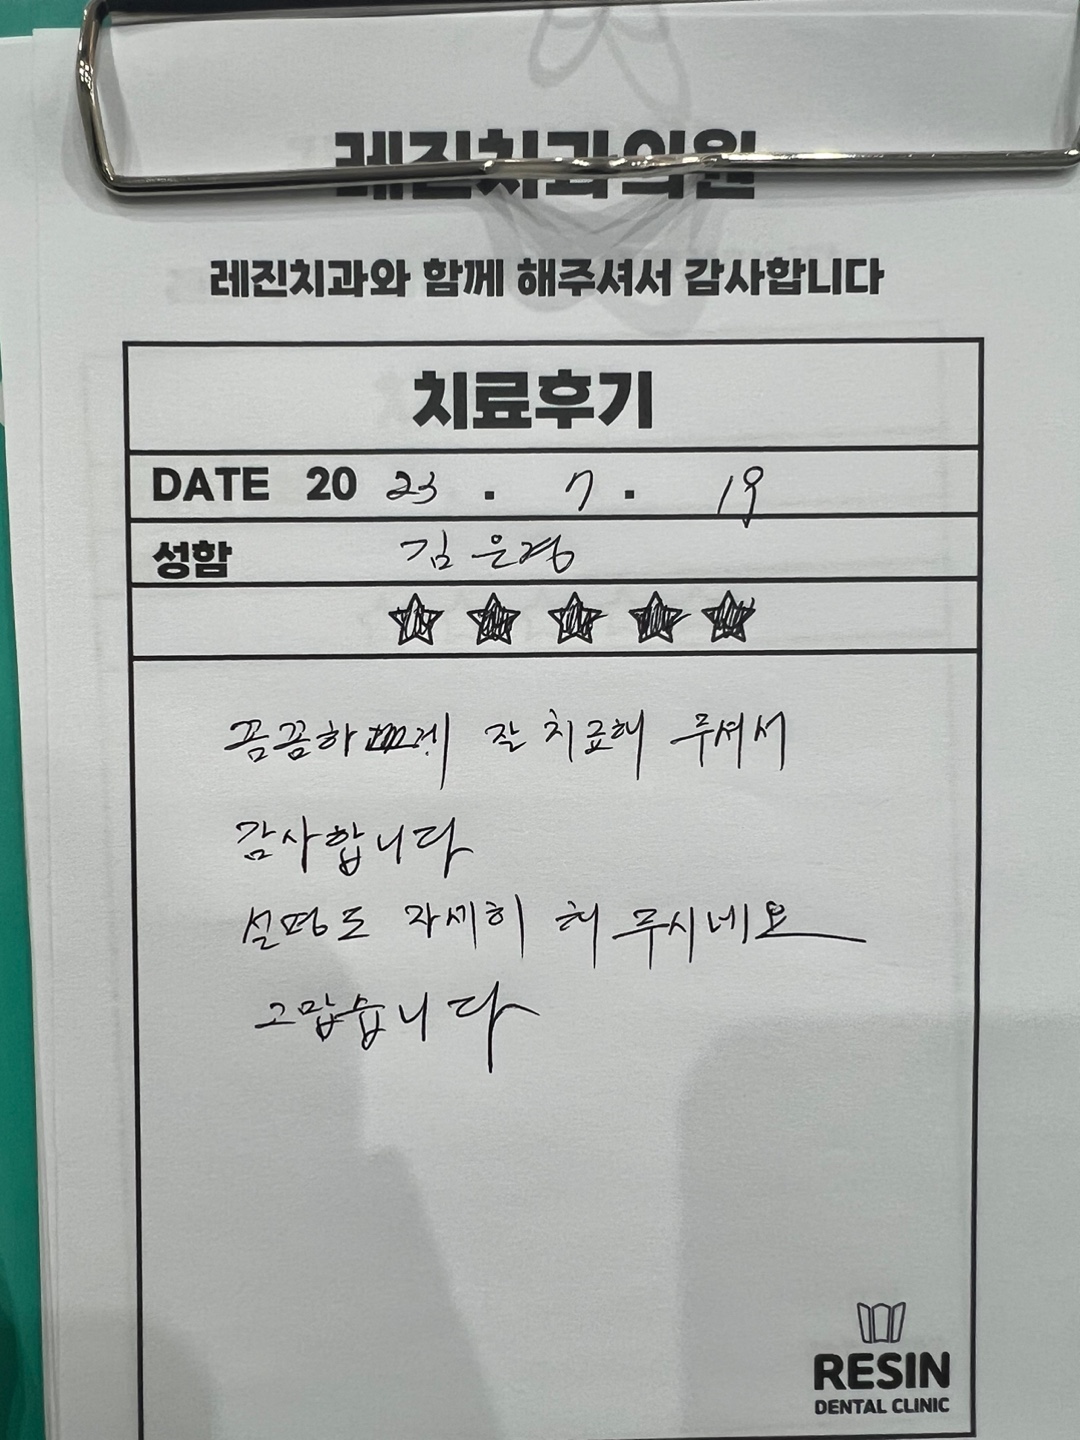 레진치과의원
레진치과와 함께 해주셔서 감사합니다
치료후기
DATE 20 23 . 7 . 19
성함 김은경
★★★★★
꼼꼼하게 잘 치료해 주셔서
감사합니다
설명도 자세히 해 주시네요
고맙습니다
RESIN
DENTAL CLINIC